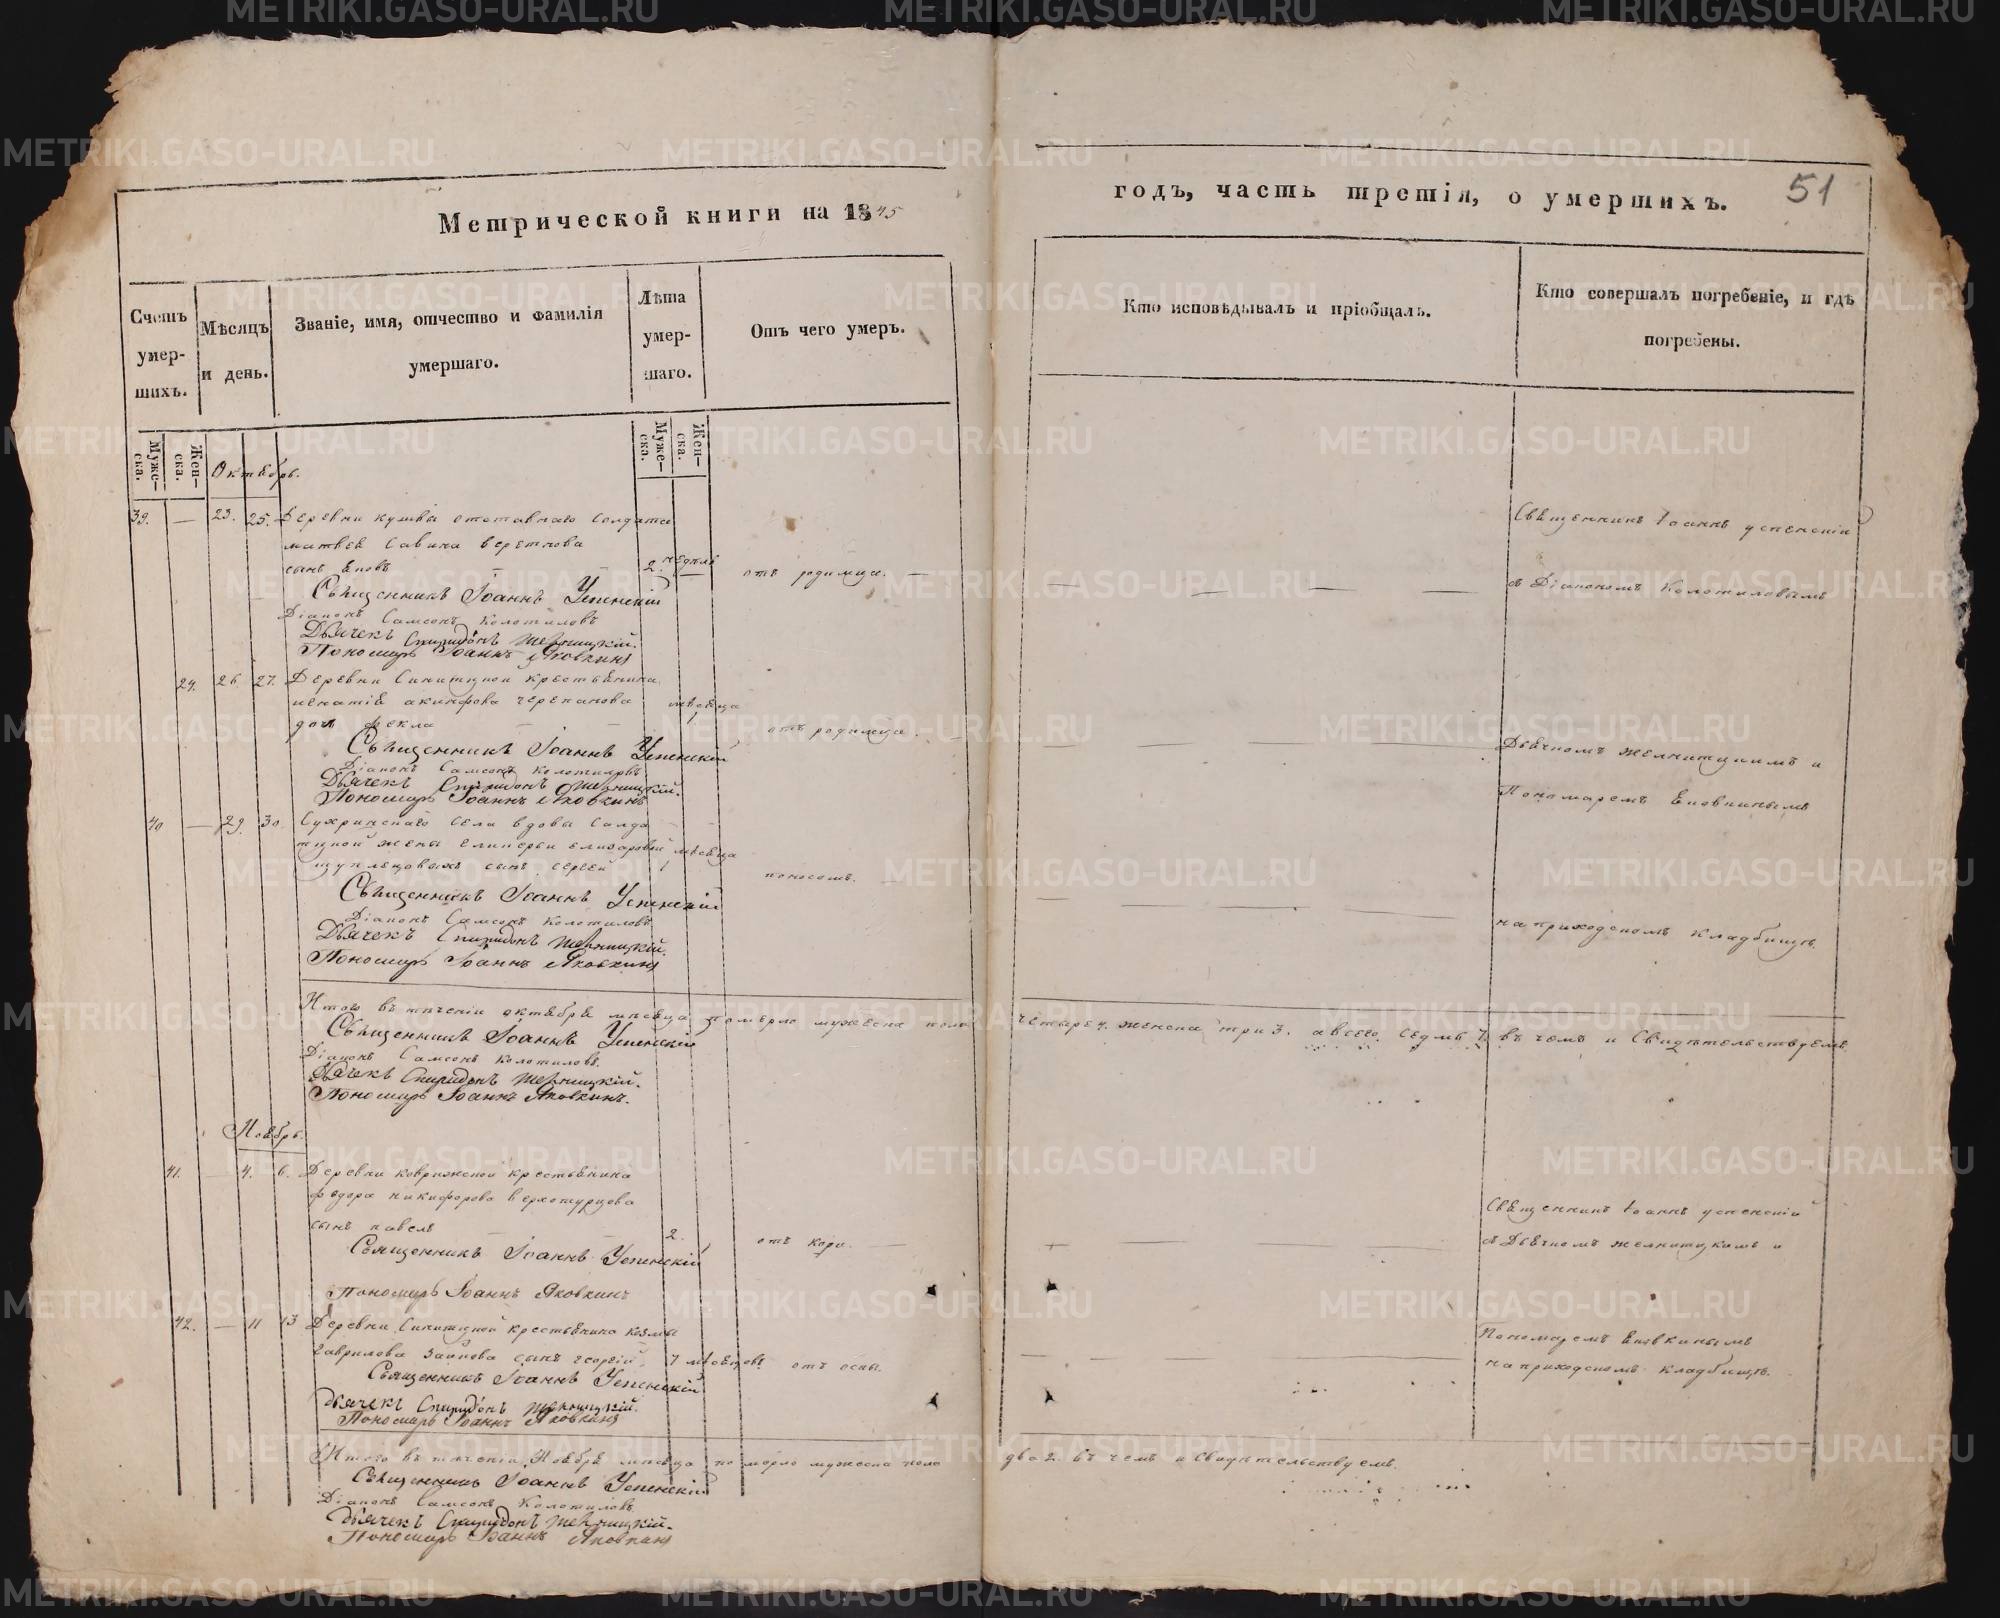 Метрической книги на 1845
годъ, часть третія, о умершихъ. 51
Счетъ умер-шихъ.
Мѣсяцъ и день.
Званіе, имя, отчество и фамилія умершаго.
Лѣта умер-шаго.
Отъ чего умеръ.
Кто исповѣдывалъ и пріобщалъ.
Кто совершалъ погребеніе, и гдѣ погребены.
Муже-ска.
Жен-ска.
Муже-ска.
Жен-ска.
Октябрь.
39. — 23. 25. Деревни отставнаго солдата
сынъ 2. недѣль отъ родимца. —
Священникъ Іоаннъ Успенскій
Діаконъ Самсонъ Колотиловъ
Дьячекъ Спиридонъ
Пономарь Іоаннъ Яковкинъ
Священникъ Іоаннъ успенскій
съ Діакономъ Колотиловымъ
24. 26. 27. Деревни Синицкой крестьянина
игнатія акинфова черепанова мѣсяца
дочь фекла 1 отъ родимца.
Священникъ Іоаннъ Успенскій
Діаконъ Самсонъ Колотиловъ
Дьячекъ Спиридонъ
Пономарь Іоаннъ Яковкинъ
Дьячкомъ и
Пономаремъ Яковкинымъ
40 — 29. 30. Сухринскаго села вдовы солда
тской жены мѣсяца
сынъ сергей 1 поносомъ. —
Священникъ Іоаннъ Успенскій
Діаконъ Самсонъ Колотиловъ
Дьячекъ Спиридонъ
Пономарь Іоаннъ Яковкинъ
на приходскомъ кладбищѣ.
Итого въ теченіи октября мѣсяца померло мужеска пола четыре 4. женска три 3. а всего седмь 7. въ чемъ и Свидѣтельствуемъ.
Священникъ Іоаннъ Успенскій
Діаконъ Самсонъ Колотиловъ.
Дьячекъ Спиридонъ
Пономарь Іоаннъ Яковкинъ.
Ноябрь.
41. — 4. 6. Деревни коврижской крестьянина
федора никифорова верхотурцова
сынъ павелъ — 2. отъ кори. —
Священникъ Іоаннъ Успенскій
Пономарь Іоаннъ Яковкинъ
Священникъ Іоаннъ успенскій
съ Дьячкомъ и
42. — 11 13 Деревни Синицкой крестьянина козмы
гаврилова сынъ георгій. 7 мѣсяцовъ отъ оспы.
Священникъ Іоаннъ Успенскій
Дьячекъ Спиридонъ
Пономарь Іоаннъ Яковкинъ
Пономаремъ Яковкинымъ
на приходскомъ кладбищѣ.
Итого въ теченіи Ноября мѣсяца померло мужеска пола два 2. въ чемъ и Свидѣтельствуемъ.
Священникъ Іоаннъ Успенскій
Діаконъ Самсонъ Колотиловъ
Дьячекъ Спиридонъ
Пономарь Іоаннъ Яковкинъ
METRIKI.GASO-URAL.RU